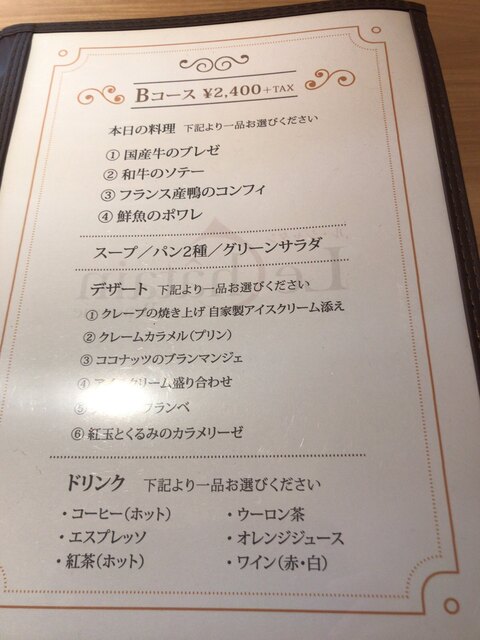 Bコース ¥2,400+TAX
本日の料理 下記より一品お選びください
① 国産牛のブレゼ
② 和牛のソテー
③ フランス産鴨のコンフィ
④ 鮮魚のポワレ
スープ／パン2種／グリーンサラダ
デザート 下記より一品お選びください
① クレープの焼き上げ 自家製アイスクリーム添え
② クレームカラメル(プリン)
③ ココナッツのブランマンジェ
④ アイスクリーム盛り合わせ
⑤ フランベ
⑥ 紅玉とくるみのカラメリーゼ
ドリンク 下記より一品お選びください
・コーヒー(ホット)
・エスプレッソ
・紅茶(ホット)
・ウーロン茶
・オレンジジュース
・ワイン(赤・白)